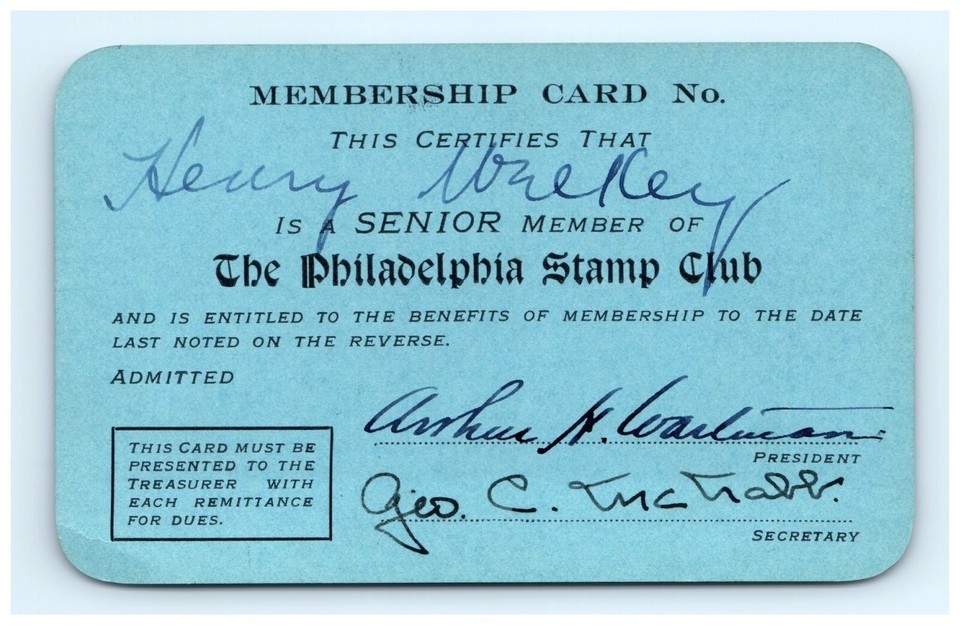 MEMBERSHIP CARD No.
THIS CERTIFIES THAT
Henry
IS A SENIOR MEMBER OF
The Philadelphia Stamp Club
AND IS ENTITLED TO THE BENEFITS OF MEMBERSHIP TO THE DATE
LAST NOTED ON THE REVERSE.
ADMITTED
Arthur H.
PRESIDENT
Geo. C.
SECRETARY
THIS CARD MUST BE
PRESENTED TO THE
TREASURER WITH
EACH REMITTANCE
FOR DUES.